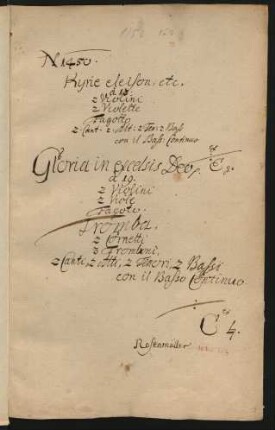 N 1450.
Kyrie eleison. etc.
â 13.
2 Violini
2 Violette
Fagotto
2 Cant: 2 Alt: 2 Ten: 2 Bassi
con il Bass: Continuo
Gloria in excelsis Deo
â 19.
2 Violini
2 Viole
Fagoto.
Tromba.
2 Cornetti
3 Tromboni.
2 Canti, 2 Alti, 2 Tenori, 2 Bassi
con il Basso Continuo
C 4.
Rosenmüller